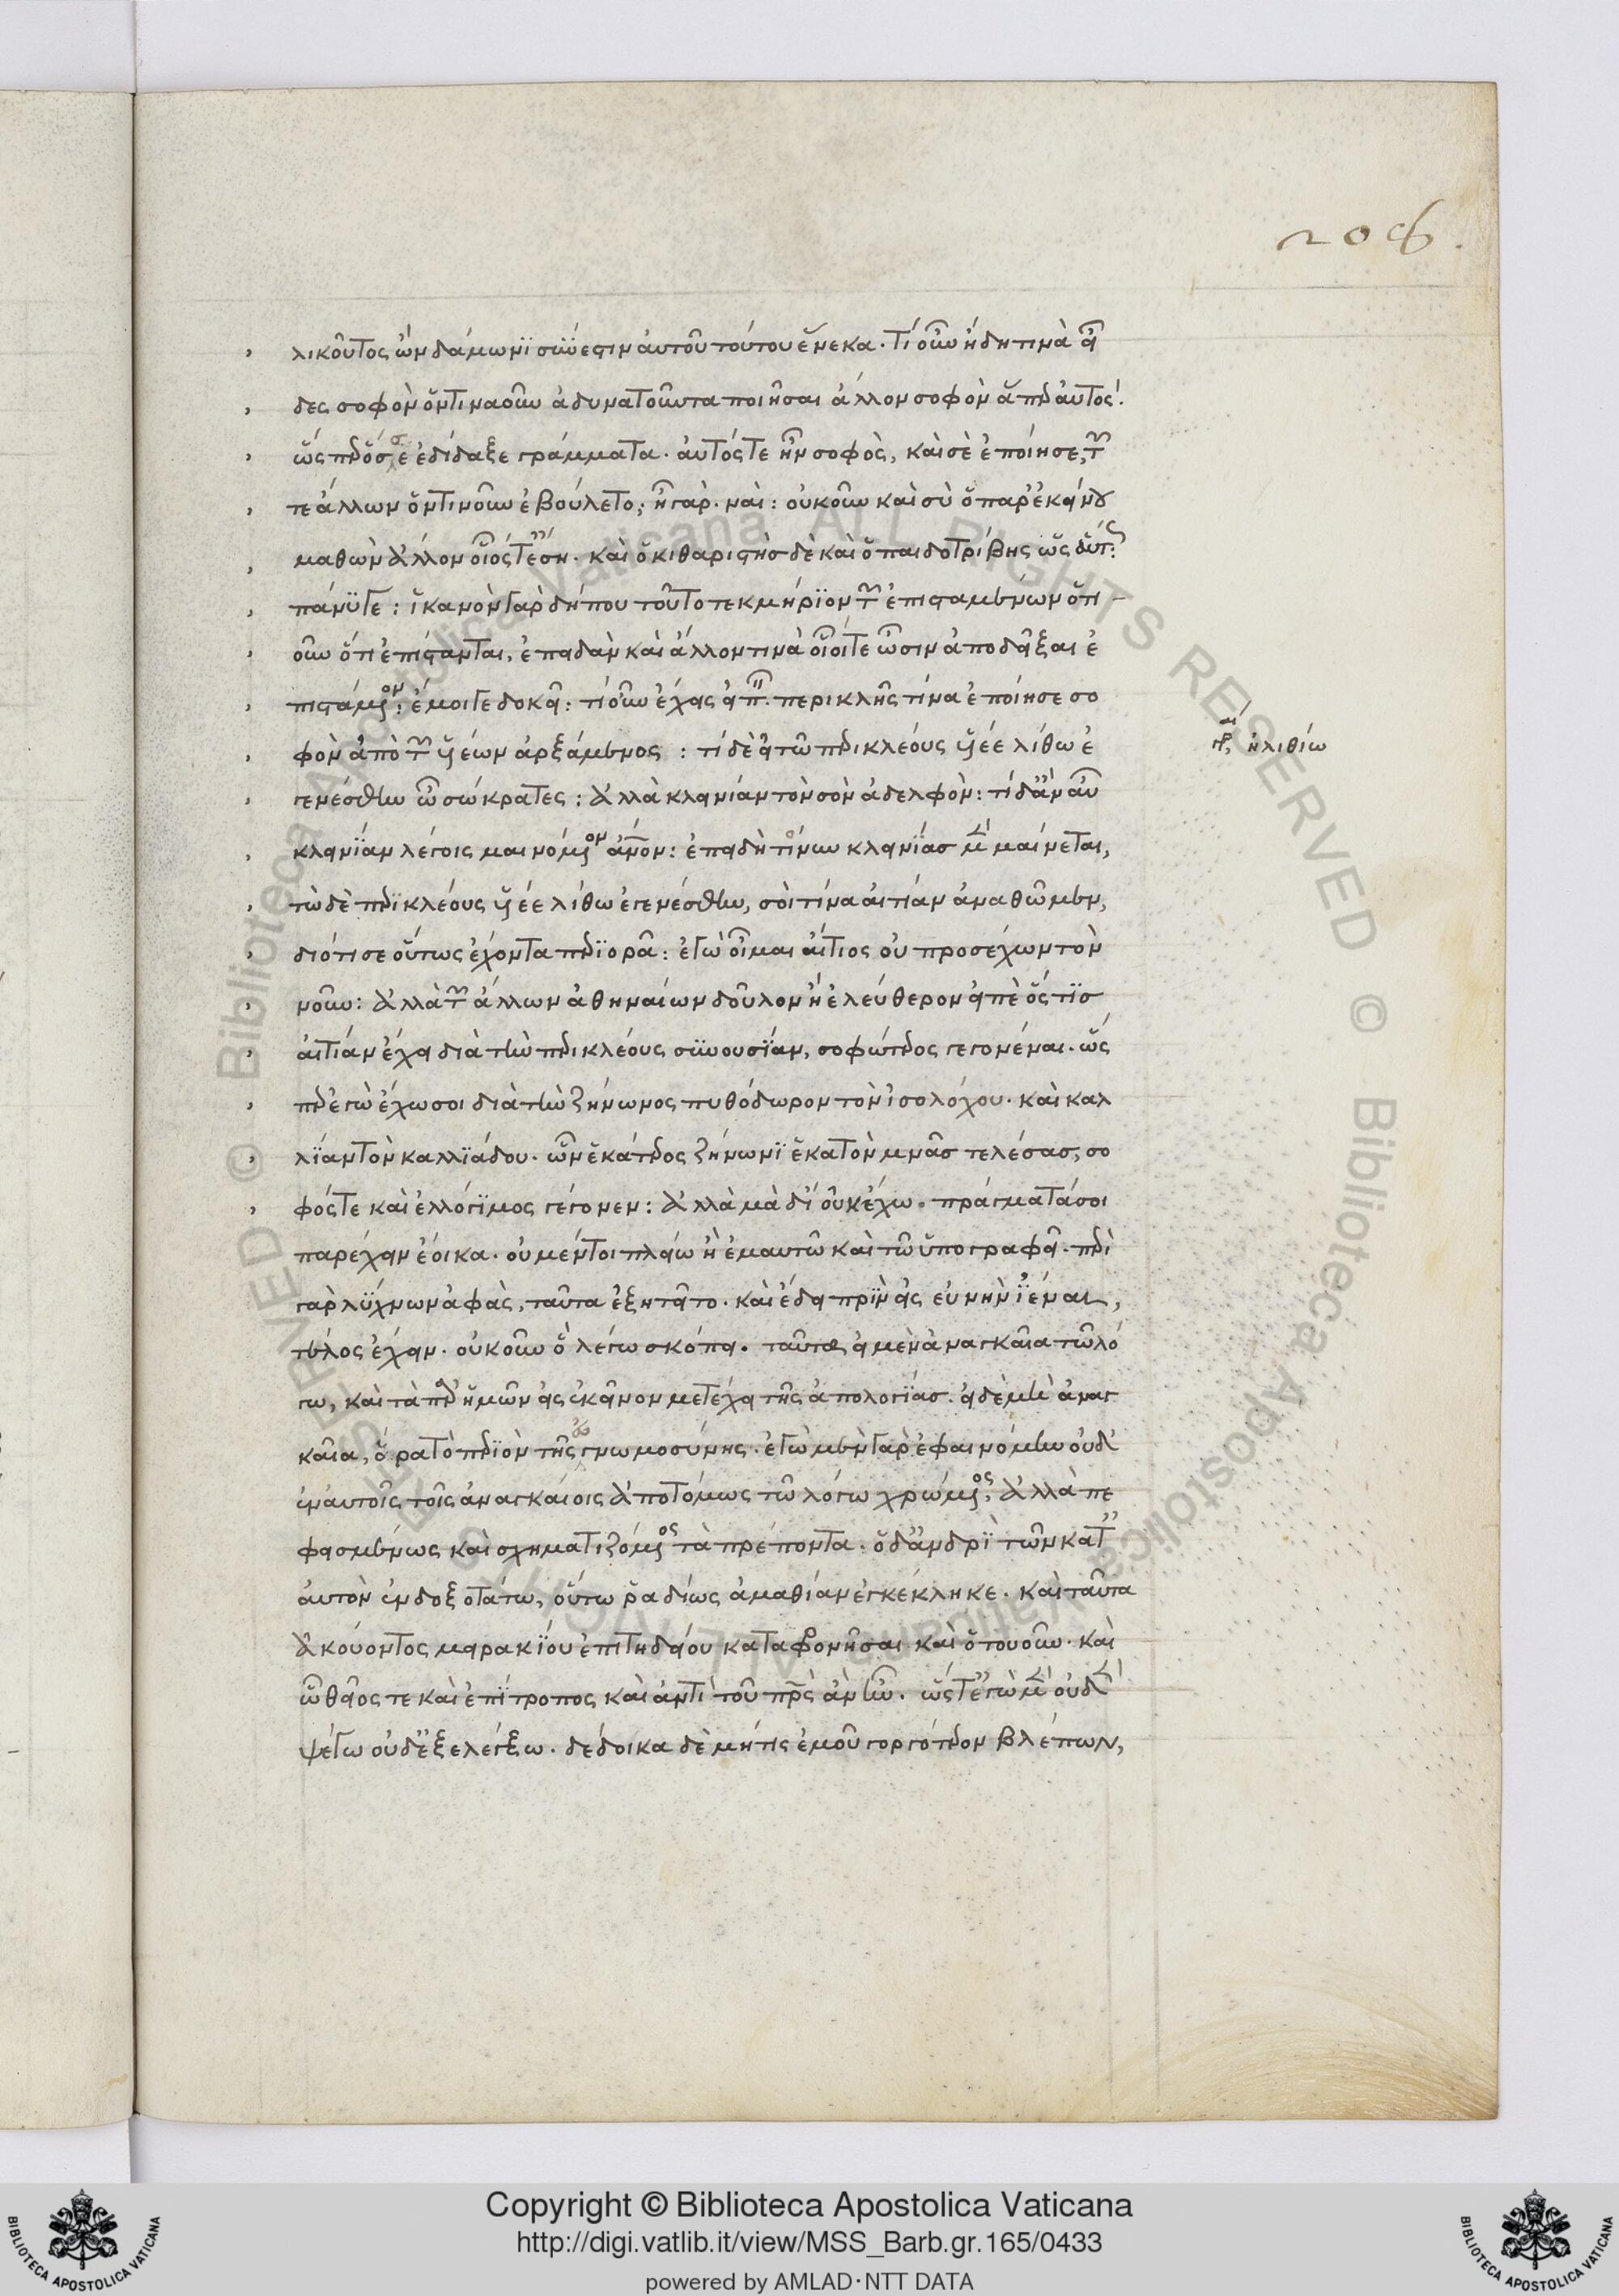 206.
λικοῦτος ὢν δάμωνϊ σύνεστιν αὐτοῦ τούτου ἕνεκα. Τί οὖν ἤδη τινὰ εἶ
δες σοφὸν ὁντιναοῦν ἀδυνατοῦντα ποιῆσαι ἄλλον σοφὸν ἅπερ αὐτός.
ὥσπερ ὅς σε ἐδίδαξε γράμματα. αὐτός τε ἦν σοφὸς, καὶ σὲ ἐποίησε, τῶν
τε ἄλλων ὅντιν οὖν ἐβούλετο, ἦ γάρ. ναὶ: οὐκοῦν καὶ σὺ ὁ παρ' ἐκείνου
μαθὼν ἄλλον οἷός τ' ἔση. καὶ ὁ κιθαριστὴς δὲ καὶ ὁ παιδοτρίβης ὡσαύτως
πάνϋ γε: ἱκανὸν γὰρ δήπου τοῦτο τεκμήριον τῶν ἐπισταμένων ὁτι
οῦν ὅτι ἐπίστανται, ἐπειδὰν καὶ ἄλλον τινὰ οἷοί τε ὦσιν ἀποδεῖξαι ἐ
πιστάμενον: ἔμοιγε δοκεῖ: τί οὖν ἔχεις εἰπεῖν. περικλῆς τίνα ἐποίησε σο
φὸν ἀπὸ τῶν ὑέων ἀρξάμενος : τί δὲ εἰ τῶ περικλέους ὑέε λίθω ἐ
γρ. ἠλιθίω
γενέσθην ὦ σώκρατες: ἀλλὰ κλεινίαν τὸν σὸν ἀδελφὸν: τί δ' ἂν αὖ
κλεινίαν λέγοις μαινόμενον ἄνον: ἐπειδὴ τοίνυν κλεινίας μὲν μαίνεται,
τὼ δὲ περικλέους ὑέε λίθω ἐγενέσθην, σοὶ τίνα αἰτίαν ἀναθῶμεν,
διότι σε οὕτως ἔχοντα περϊορᾶ: ἐγὼ οἶμαι αἴτιος οὐ προσέχων τὸν
νοῦν: ἀλλὰ τῶν ἄλλων ἀθηναίων δοῦλον ἢ ἐλεύθερον εἰπὲ ὅς τϊς
αἰτίαν ἔχει διὰ τὴν περικλέους συνουσϊαν, σοφώτερος γεγονέναι. ὥς
περ ἐγὼ ἔχω σοι διὰ τὴν ζήνωνος πυθόδωρον τὸν ἰσολόχου. καὶ καλ
λϊαν τὸν καλλϊάδου. ὧν ἑκάτερος ζήνωνϊ ἑκατὸν μνᾶς τελέσας, σο
φός τε καὶ ἐλλόγϊμος γέγονεν: ἀλλὰ μὰ δί' οὐκ ἔχω. πράγματά σοι
παρέχειν ἔοικα. οὐ μέντοι πλείω ἢ ἐμαυτῶ καὶ τῶ ὑπογραφεῖ. περὶ
γὰρ λϋχνων ἁφὰς, ταῦτα ἐξητεῖτο. καὶ ἔδει πρϊν εἰς εὐνὴν ϊέναι,
τέλος ἔχειν. οὐκοῦν ὃ λέγω σκόπει. ταῦτα εἰ μὲν ἀναγκαῖα τῶ λό
γω, καὶ τὰ περ ἡμῶν εἰς ἐκεῖνον μετέχει τῆς ἀπολογϊας. εἰ δὲ μὴ ἀναγ
καῖα, ὅρα τὸ περϊὸν τῆς ἀγνωμοσύνης. ἐγὼ μὲν γὰρ ἐφαινόμην οὐδ'
ἐν αὐτοῖς τοῖς ἀναγκαίοις ἀποτόμως τῶ λόγω χρώμενος, ἀλλὰ πε
φεισμένως καὶ σχηματιζόμενος τὰ πρέποντα. ὁ δ' ἀνδρϊ τῶν κατ'
αὐτὸν ἐνδοξοτάτω, οὕτω ῥαδίως ἀμαθίαν ἐγκέκληκε. καὶ ταῦτα
ἀκούοντος μειρακϊου ἐπιτηδείου καταφρονῆσαι καὶ ὁτουοῦν. καὶ
ὧ θεῖος τε καὶ ἐπϊτροπος καὶ ἀντὶ τοῦ πρς ἂν ἦν. ὥς τ' ἐγὼ μὲν οὐδὲν
ψέγω οὐδ' ἐξελέγξω. δέδοικα δὲ μή τις ἐμοῦ γοργότερον βλέπων,